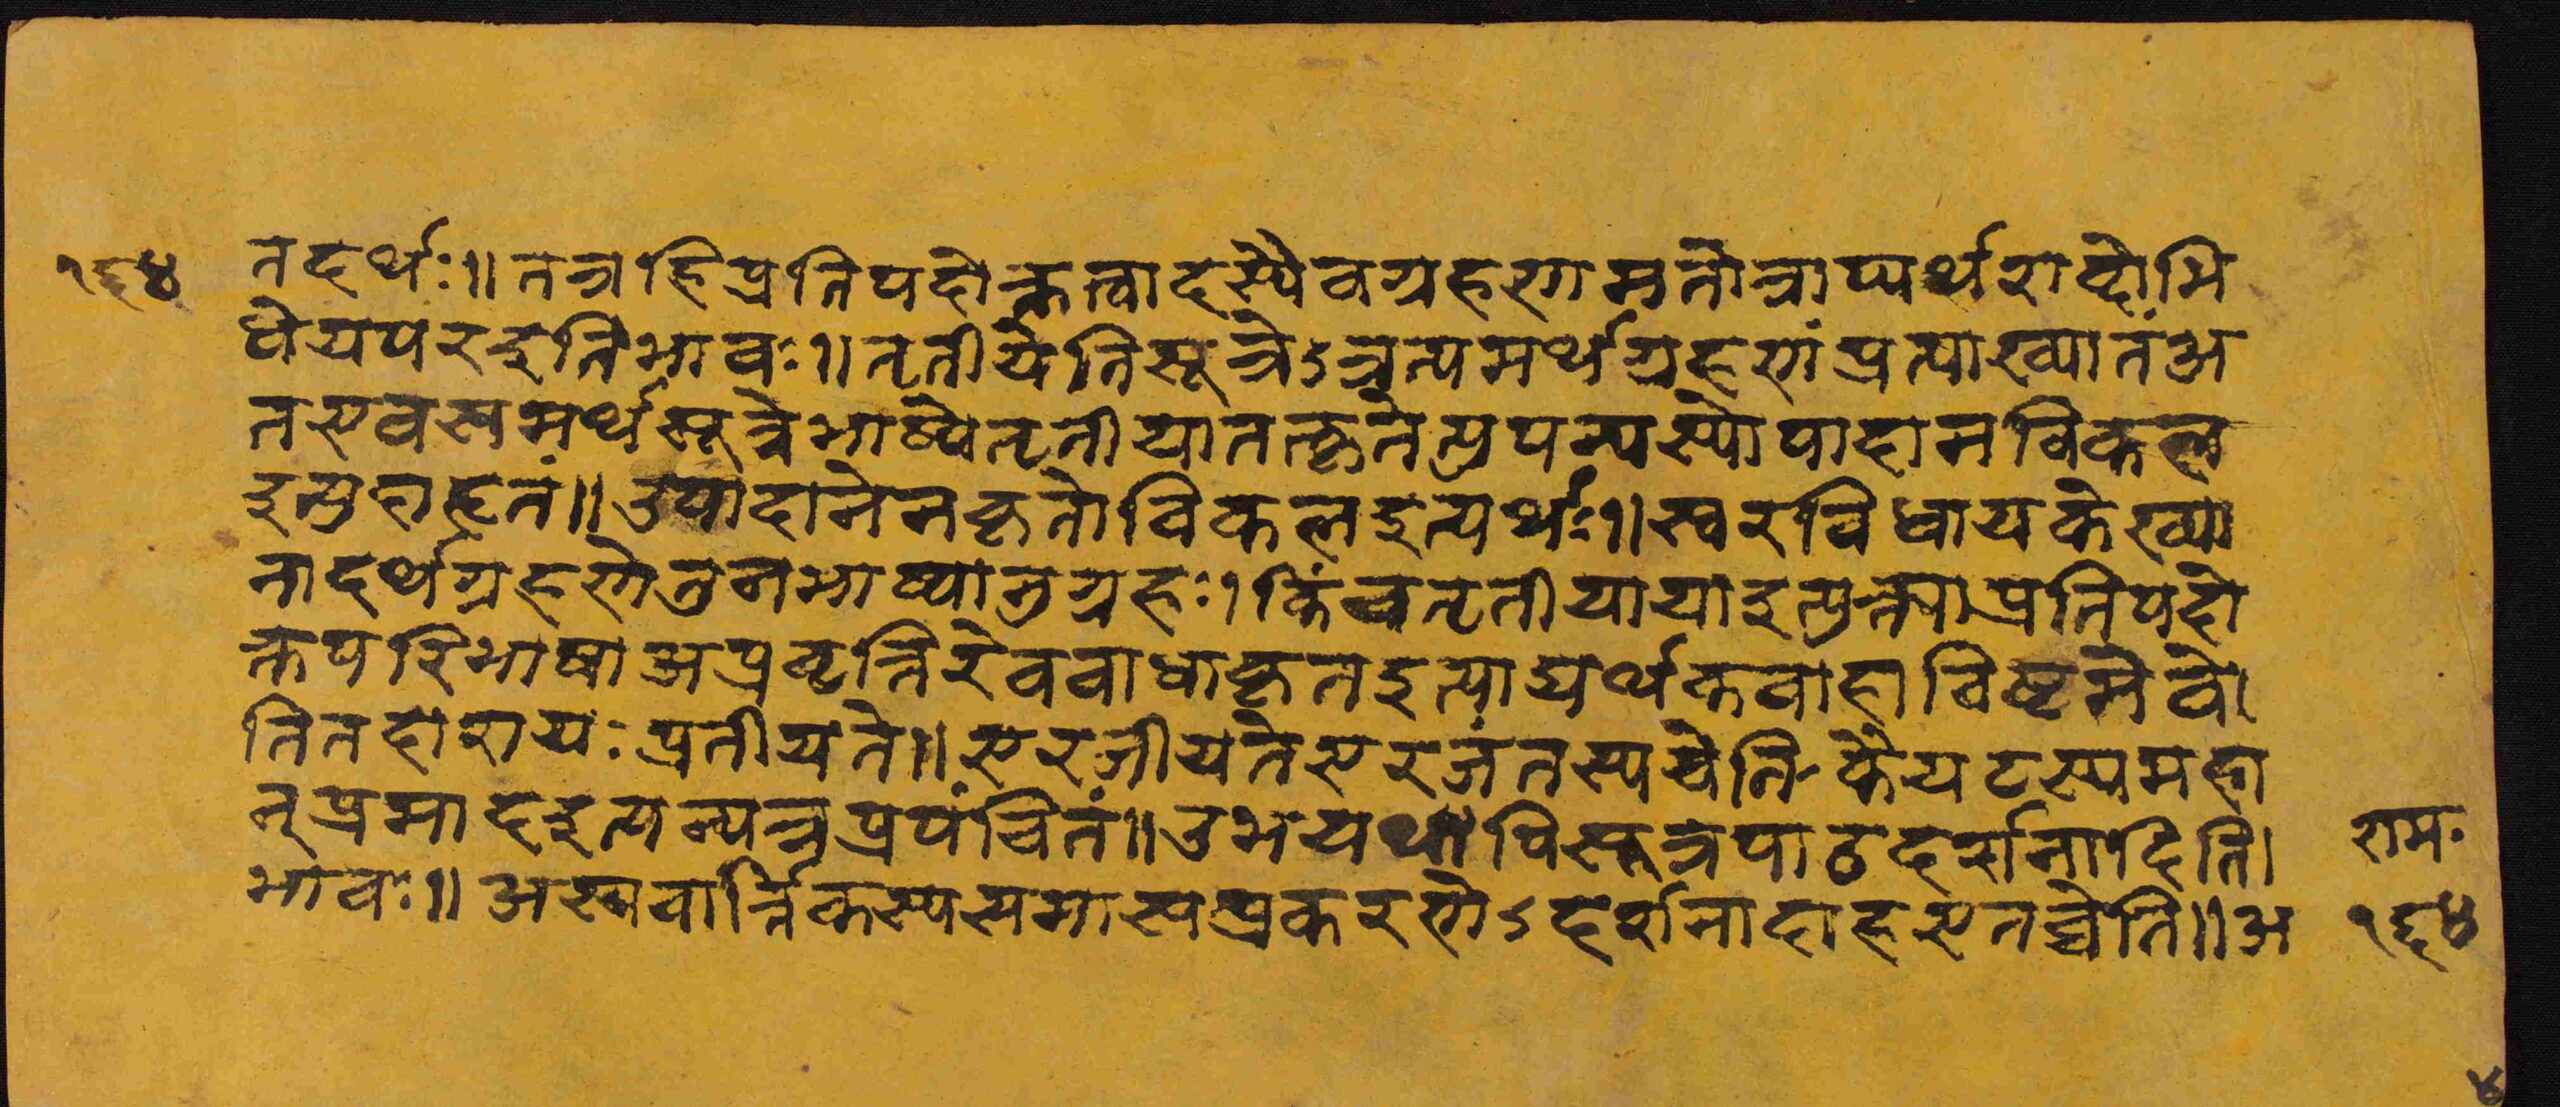 १६४ तदर्थः॥तत्रहिप्रतिपदोक्तत्वादस्यैवग्रहणमतोत्राप्यर्थशब्दोभि
धेयपरइतिभावः॥तृतीयेतिसूत्रेऽत्रत्यमर्थग्रहणंप्रत्याख्यातंअ
तएवसमर्थसूत्रेभाष्येतृतीयातत्कृतेत्युपन्यस्योपादानविकल
इत्युदाहृतं॥उपादानेनकृतोविकलइत्यर्थः॥स्वरविधायकेख्या
नादर्थग्रहणेतुनभाष्यानुग्रहः।किंचतृतीयायाइत्युक्त्वाप्रतिपदो
क्तपरिभाषाअप्रवृत्तिरेवबाधाकृतइत्याद्यर्थकवाहाविष्टमेवे
तितदाशयःप्रतीयते॥सरजीयतेसरजंतस्यचेतिकैयटस्यमहा
न्प्रमादइत्यन्यत्रप्रपंचितं॥उभयथापिसूत्रपाठदर्शनादिति।
भावः॥अस्यवार्त्तिकस्यसमासप्रकरणेऽदर्शनादाहएतच्चेति॥अ
रामः
१६४
४